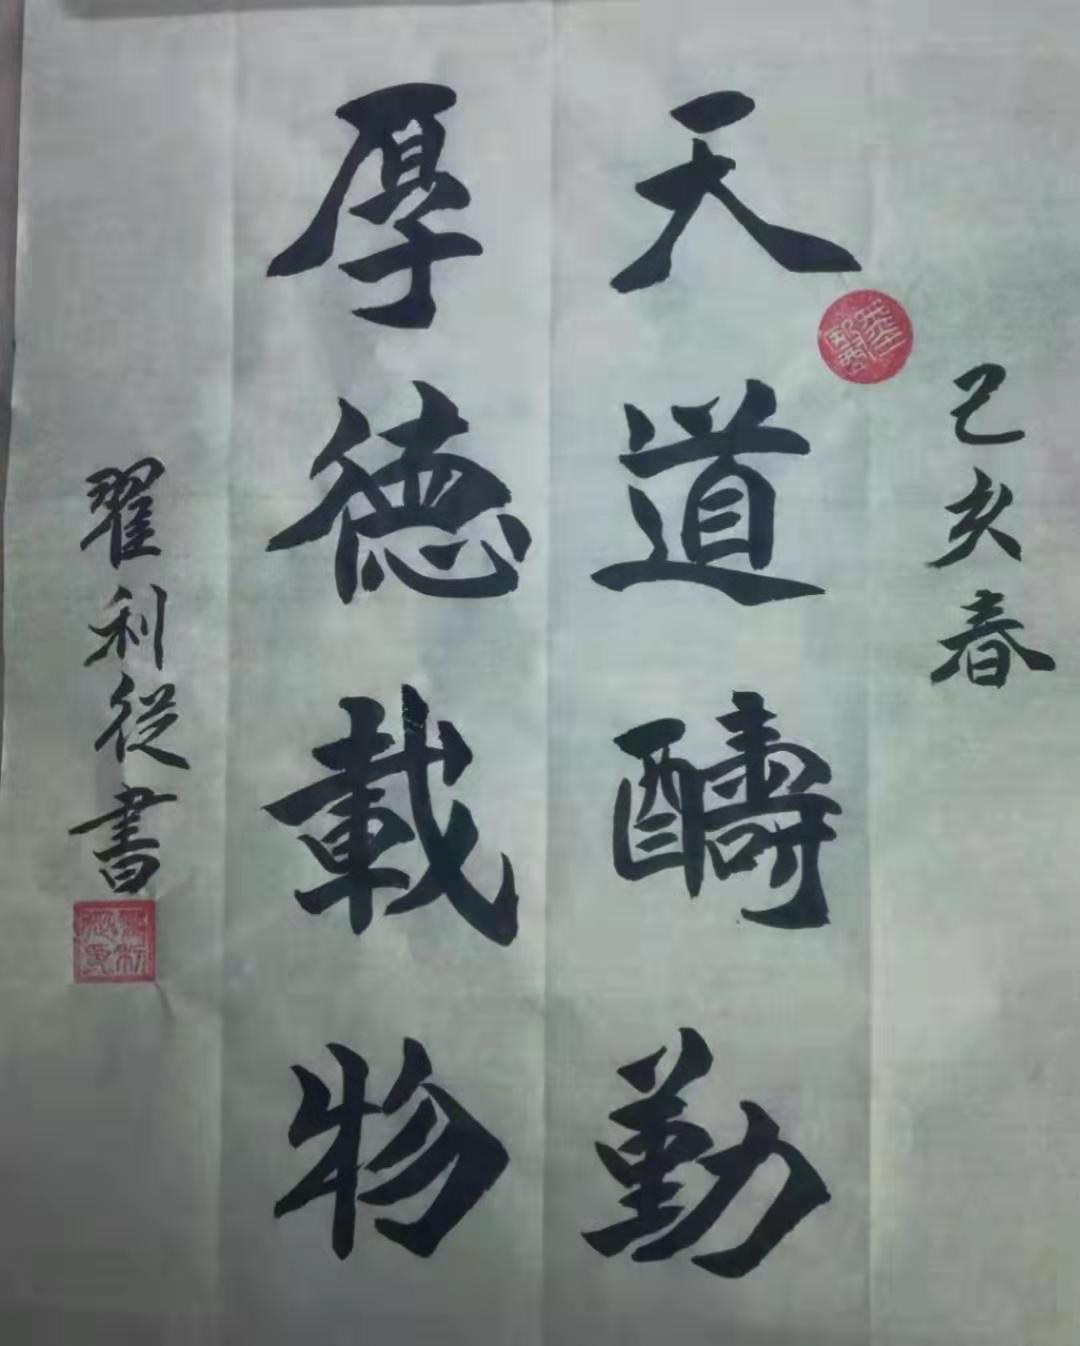 己亥春
天道醻勤
厚德載物
翟利從書